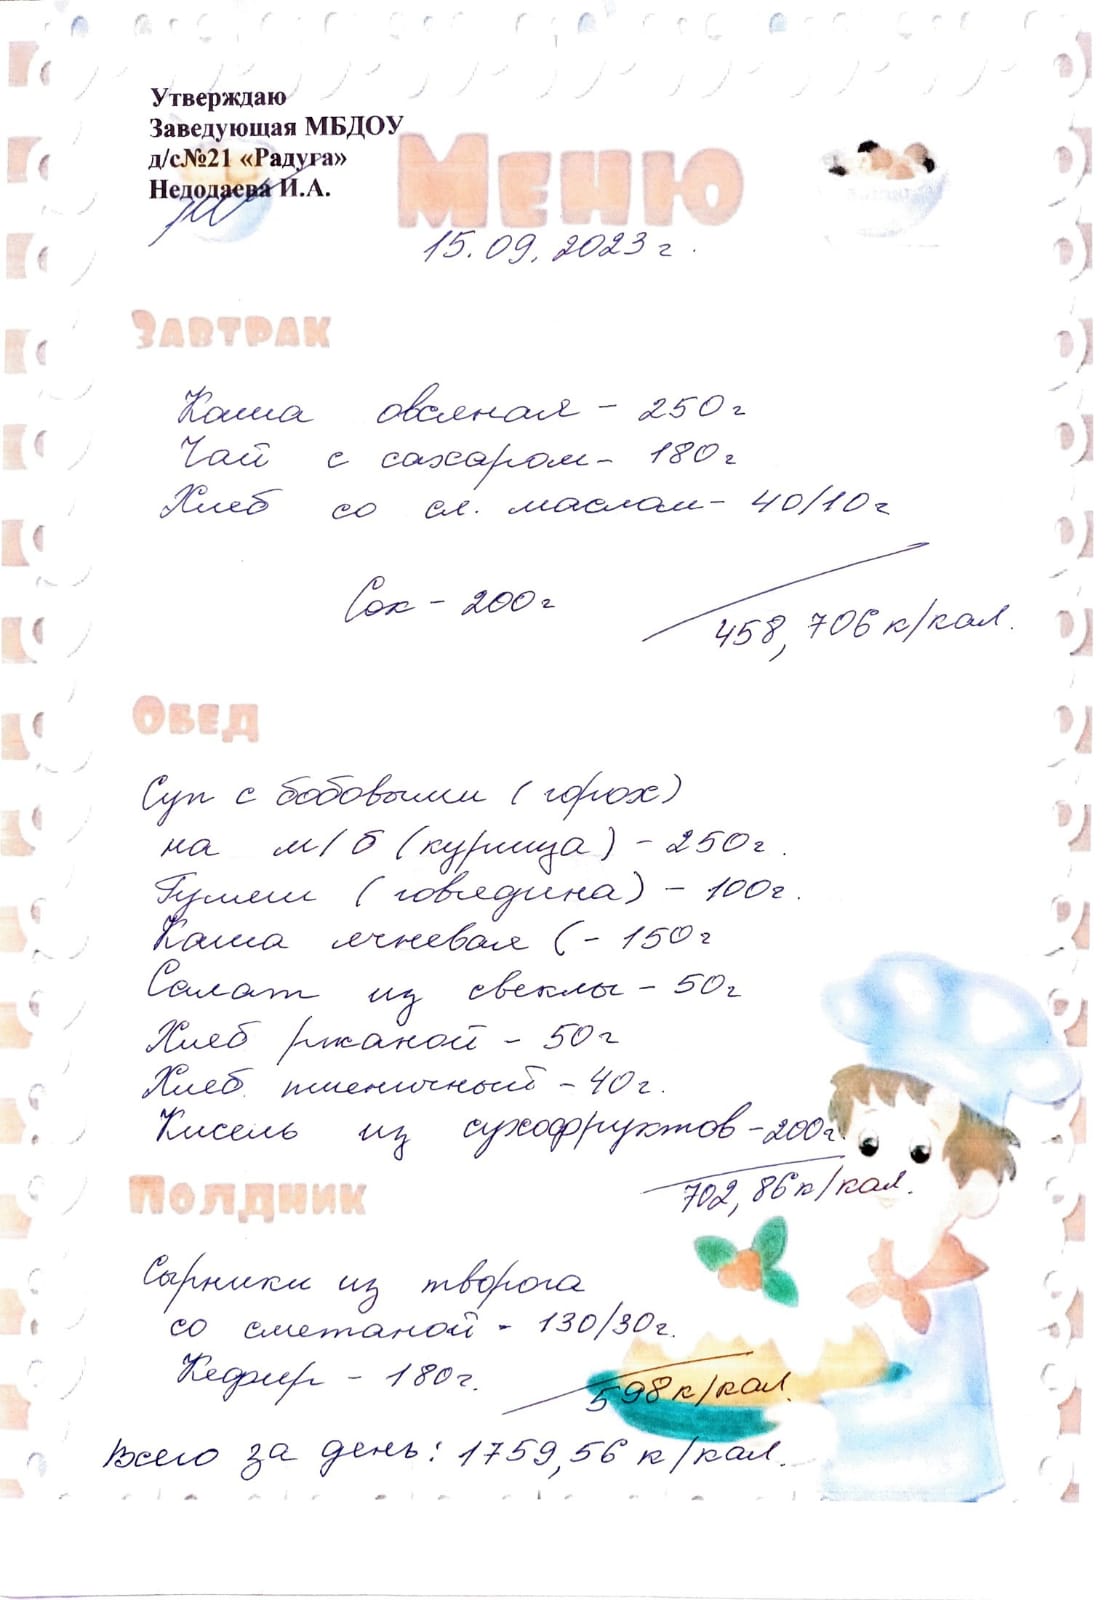 Утверждаю
Заведующая МБДОУ
д/с№21 «Радуга»
Недодаева И.А.
Меню
15.09.2023г.
Завтрак
Каша овсяная - 250г
Чай с сахаром - 180г
Хлеб со сл. маслом - 40/10г
Сок - 200г
458,706 к/кал.
Обед
Суп с бобовыми (горох)
на м/б (курица) - 250г.
Гуляш (говядина) - 100г.
Каша ячневая ( - 150г
Салат из свеклы - 50г
Хлеб ржаной - 50г
Хлеб пшеничный - 40г.
Кисель из сухофруктов - 200г.
702,86 к/кал.
Полдник
Сырники из творога
со сметаной - 130/30г.
Кефир - 180г.
598 к/кал.
Всего за день: 1759,56 к/кал.